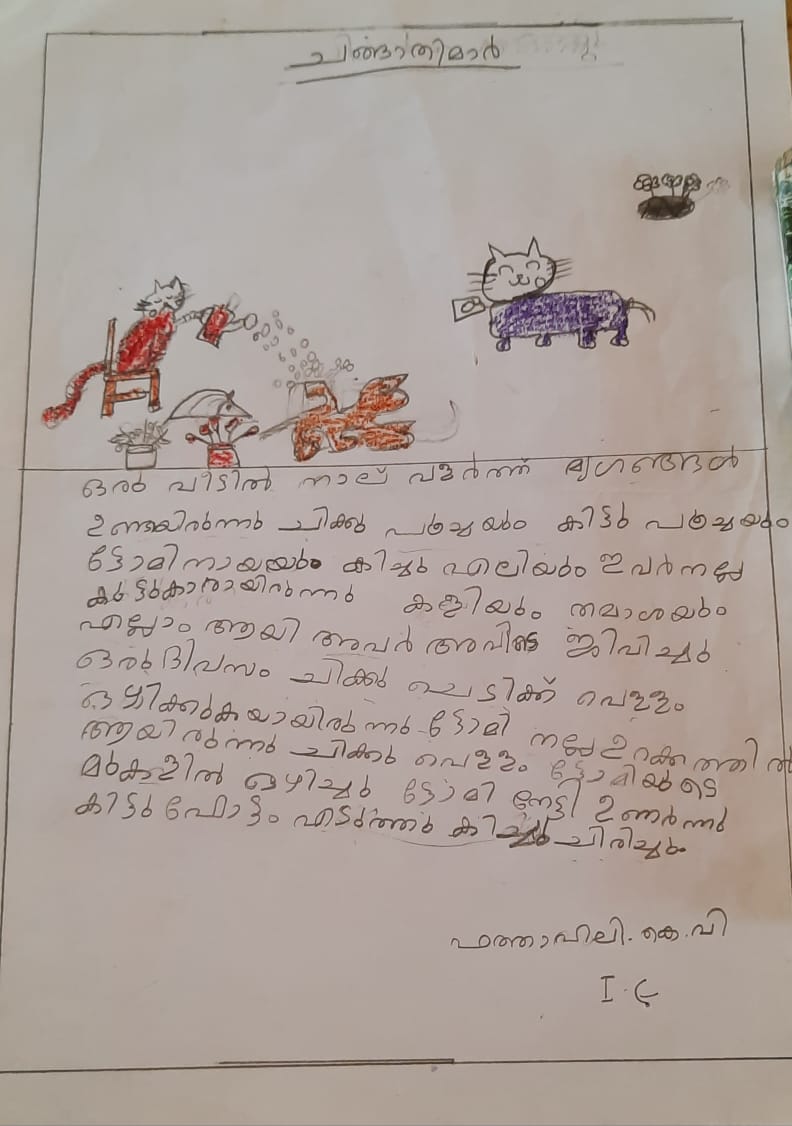 ചിങ്ങാതിമാർ
ഒരു വീട്ടിൽ നാല് വളർത്ത് മൃഗങ്ങൾ
ഉണ്ടായിരുന്നു ചിക്കു പൂച്ചയും കിട്ടു പൂച്ചയും
ട്ടോമി നായയും കിച്ചു എലിയും ഇവർ നല്ല
കൂട്ടുകാരായിരുന്നു കളിയും തമാശയും
എല്ലാം ആയി അവർ അവിടെ ജീവിച്ചു
ഒരു ദിവസം ചിക്കു ചെടിക്ക് വെള്ളം
ഒഴിക്കുകയായിരുന്നു ട്ടോമി നല്ല ഉറക്കത്തിൽ
ആയിരുന്നു ചിക്കു വെള്ളം ട്ടോമിയുടെ
മുകളിൽ ഒഴിച്ചു ട്ടോമി ഞെട്ടി ഉണർന്നു
കിട്ടു ഫോട്ടം എടുത്തു കിച്ചു ചിരിച്ചു.
കെ.വി